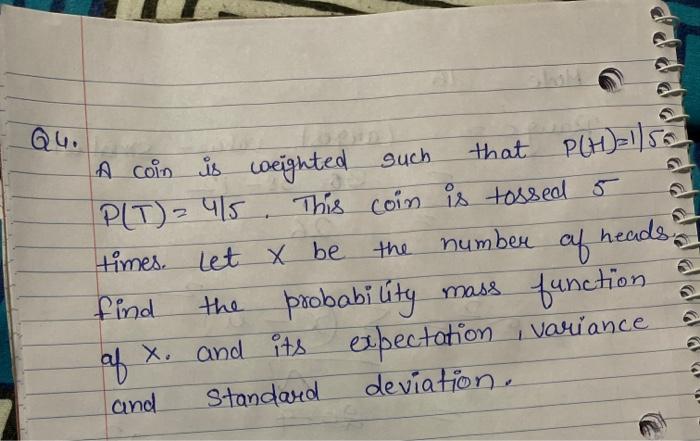 Q4.
A coin is weighted such that P(H)=1/5
P(T) = 4/5. This coin is tossed 5
times. Let X be the number of heads.
find the probability mass function
of X. and its expectation, variance
and standard deviation.